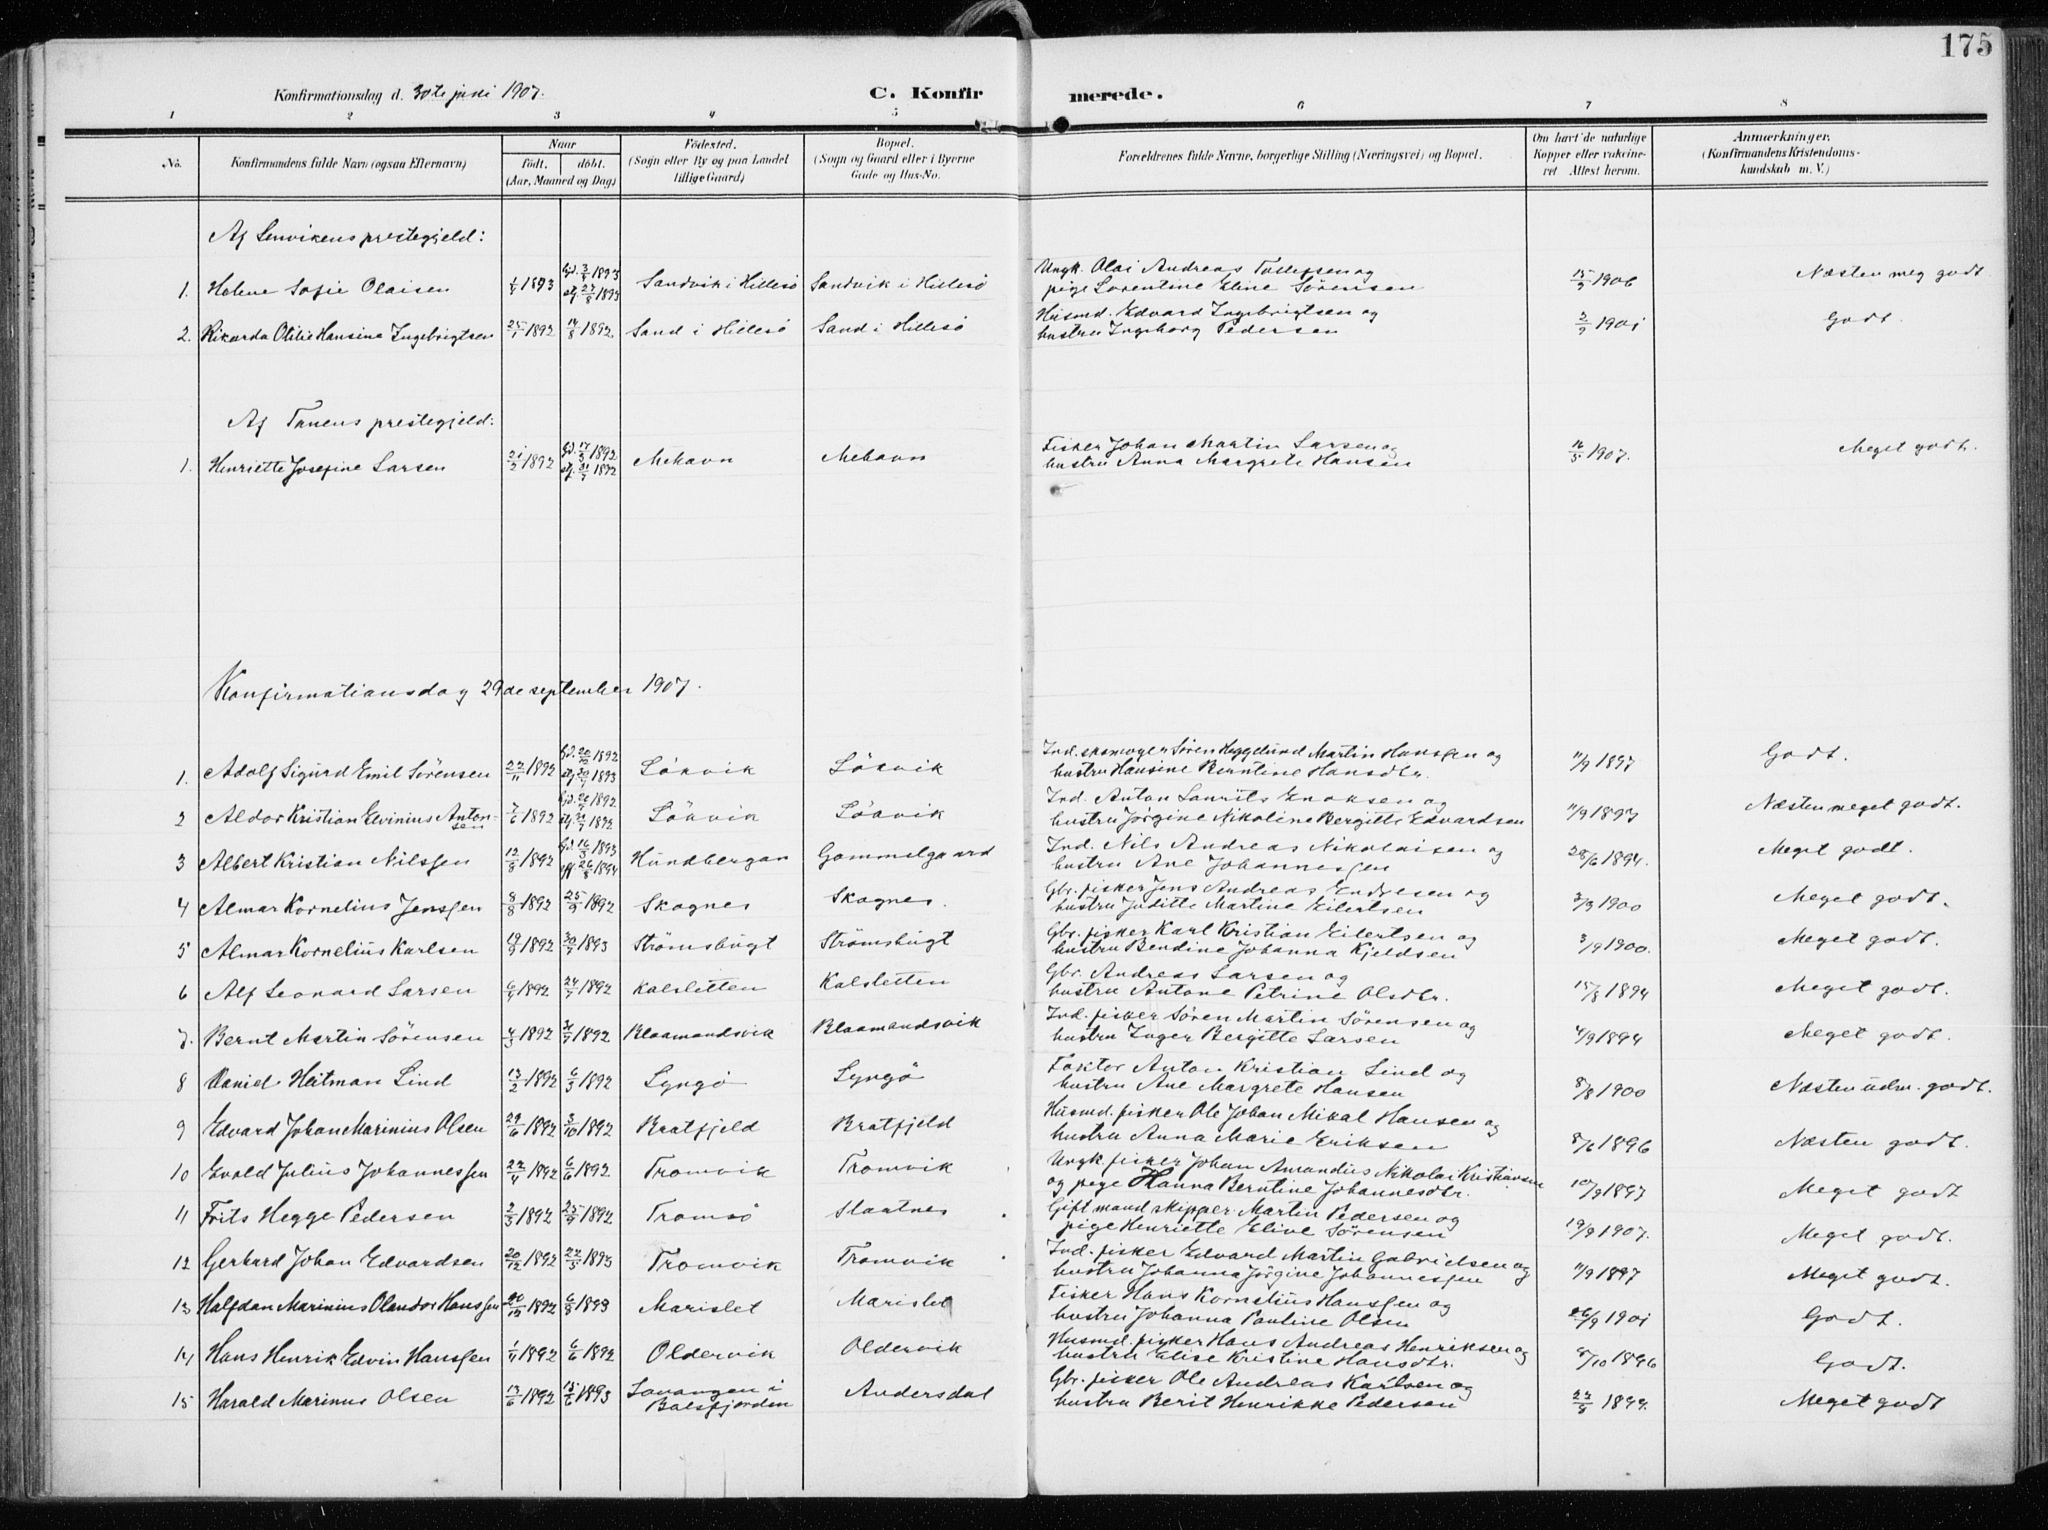 175
Konfirmationsdag d. 30te juni 1907.
C. Konfirmerede.
1 2 3 4 5 6 7 8
No. Konfirmandens fulde Navn (ogsaa Efternavn) Naar født. døbt. (Aar, Maaned og Dag) Fødested. (Sogn eller By og paa Landet tillige Gaard) Bopæl. (Sogn og Gaard eller i Byerne Gade og Hus-No. Forældrenes fulde Navne, borgerlige Stilling (Næringsvei) og Bopæl. Om havt de naturlige Kopper eller vakcineret Attest herom. Anmærkninger. (Konfirmandens Kristendomskundskab m. V.)
Af Lenvikens prestegjeld:
1. Helene Sofie Olaisen 1893 Sandvik i Hillesö Sandvik i Hillesö Ungk. Olai Andreas Tollefsen og 15/9 1906 Næsten meg godt
pige Lorentine Eline Sørensen
2. Rikarda Otilie Hansine Ingebrigtsen 25/1 1892 14/8 1892 Sand i Hillesö Sand i Hillesö Husmd. Edvard Ingebrigtsen og 1901 Godt.
hustru Ingeborg Pedersen
Af Tanens prestegjeld:
1. Henriette Josefine Larsen 21/2 1892 hjd. 17/3 1892 stf. 31/7 1892 Mehavn Mehavn Fisker Johan Martin Larsen og 16/5 1907. Meget godt.
hustru Anna Margrete Hansen
Konfirmationsdag 29de september 1907.
1. Adolf Sigurd Emil Sørensen 27/11 1892 1892 1893 Lökvik Lökvik Ind. skomager Søren Heggelund Martin Hanssen og 11/9 1897 Godt.
hustru Hansine Berntine Hansdtr.
2 Aldor Kristian Elvinius Antonsen 7/6 1892 1892 1892 Lökvik Lökvik Ind. Anton Laurits Enoksen og 11/9 1897 Næsten meget godt.
hustru Jørgine Nikoline Bergitte Edvardsen
3 Albert Kristian Nilssen 1892 16/3 1893 26/8 1894 Hundbergan Gammelgaard Ind. Nils Andreas Nikolaisen og 28/6 1894. Meget godt.
hustru Ane Johannessen
4 Almar Kornelius Jenssen 8/8 1892 25/9 1892 Skognes Skognes. Gbr. fisker Jens Andreas Endresen og 3/9 1900 Meget godt.
hustru Juditte Martine Eilertsen
5 Almar Kornelius Karlsen 1892 30/7 1893 Strömsbugt Strömsbugt Gbr. fisker Karl Kristian Eilertsen og 3/9 1900. Meget godt.
hustru Bendine Johanna Kjeldsen
6 Alf Leonard Larsen 6/4 1892 24/7 1892 Kalsletten Kalsletten Gbr. Andreas Larsen og 15/8 1894 Meget godt.
hustru Antone Petrine Olsdtr.
7. Bernt Martin Sörensen 4/3 1892 31/7 1892 Blaamandsvik Blaamandsvik Ind. fisker Søren Martin Sørensen og 4/9 1894 Meget godt.
hustru Inger Bergitte Larsen
8 Daniel Heitman Lind 13/2 1892 6/3 1892 Lyngö Lyngö Faktor Anton Kristian Lind og 8/8 1900 Næsten udm. godt.
hustru Ane Margrete Hansen
9 Edvard Johan Marinius Olsen 29/6 1892 3/10 1892 Bratfjeld Bratfjeld Husmd. fisker Ole Johan Mikal Hansen og 8/6 1896 Næsten godt.
hustru Anna Marie Eriksen
10 Evald Julius Johannessen 22/4 1892 6/6 1892 Tromvik Tromvik Ungk. fisker Johan Amandus Nikolai Kristiansen 10/9 1897 Meget godt
og pige Hanna Berntine Johannesdtr.
11 Frits Hegge Pedersen 2/3 1892 25/9 1892 Tromsö Slaatnes Gift mand skipper Martin Pedersen og 19/9 1907. Meget godt.
pige Henriette Eline Sørensen
12 Gerhard Johan Edvardsen 20/12 1892 22/5 1893 Tromvik Tromvik Ind. fisker Edvard Martin Gabrielsen og 11/9 1897 Meget godt.
hustru Johanna Jørgine Johannessen
13 Halfdan Marinius Olandor Hanssen 20/12 1892 6/8 1893 Marislet Marislet Fisker Hans Kornelius Hanssen og 26/9 1901 Godt.
hustru Johanna Pauline Olsen
14 Hans Henrik Edvin Hanssen 1/4 1892 6/6 1892 Oldervik Oldervik Husmd. fisker Hans Andreas Henriksen og 8/10 1896 Godt.
hustru Elise Kristine Hansdtr.
15 Harald Marinus Olsen 13/6 1892 15/6 1893 Lavangen i Balsfjorden Andersdal Gbr. fisker Ole Andreas Karlsen og 22/8 1899. Meget godt
hustru Berit Henrikke Pedersen